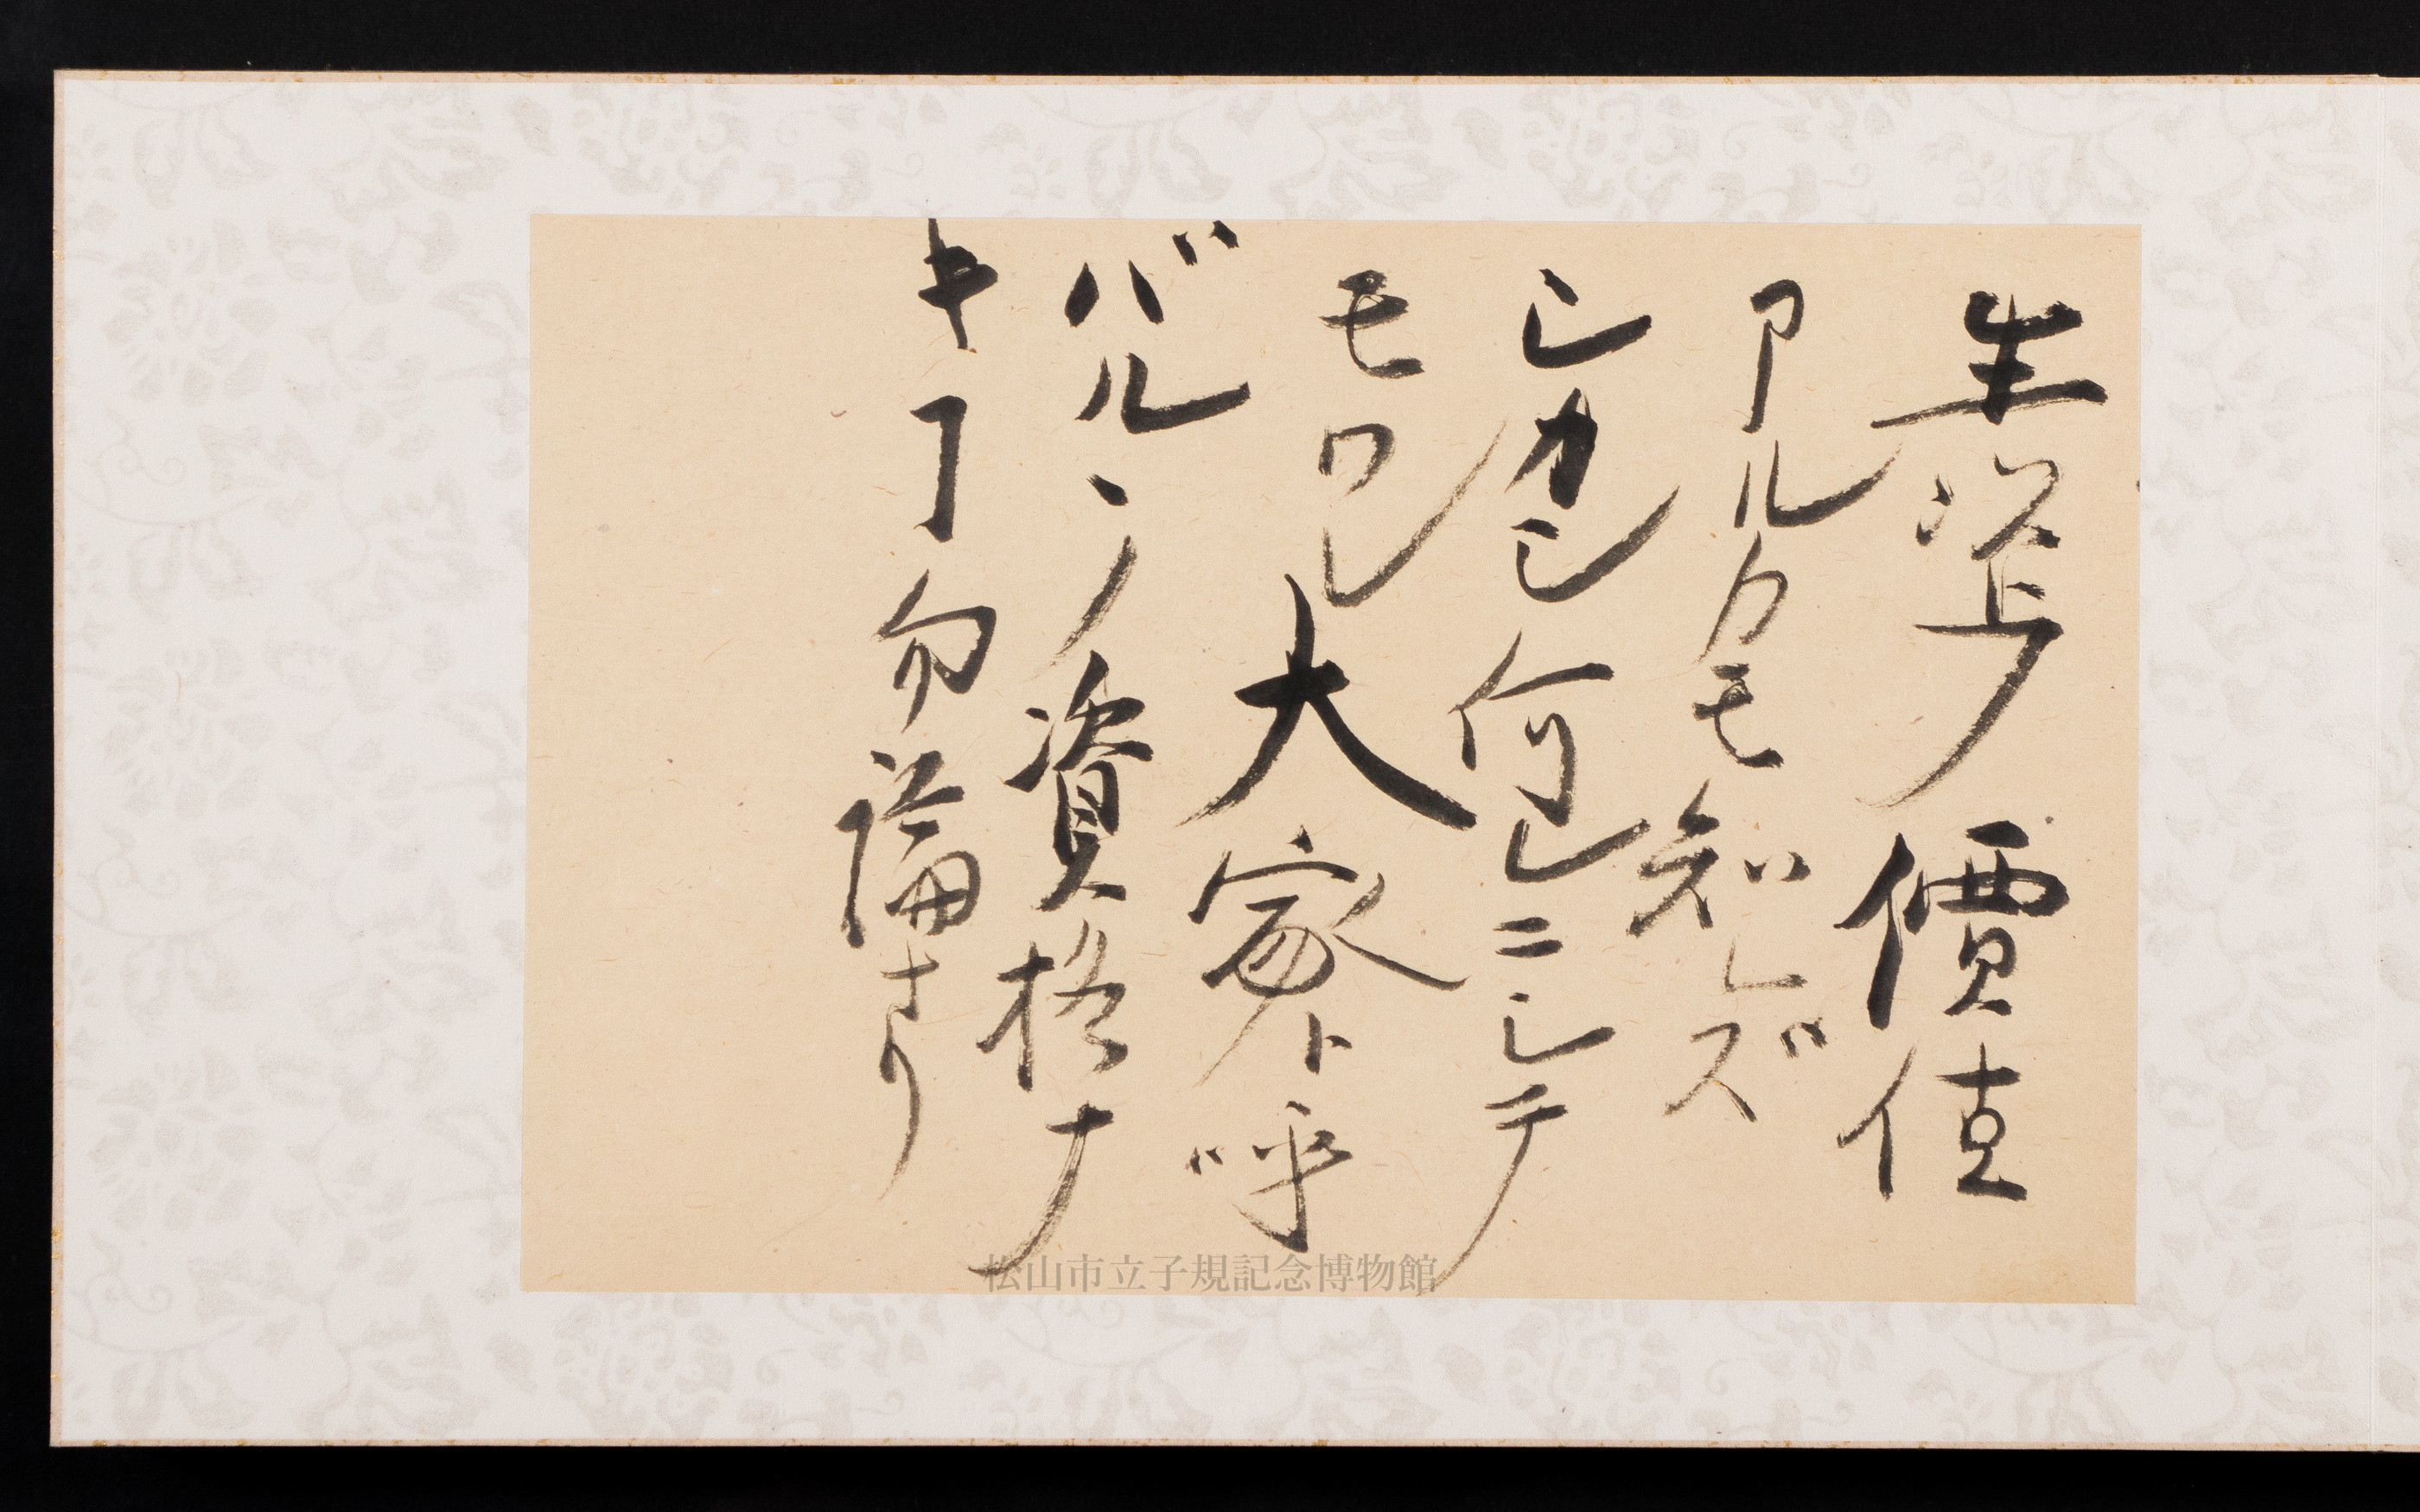 上ノ價値
アルカモ知レズ
シカシ何レニシテ
モワレ大家ト呼
バルヽノ資格ナ
キヿ勿論ナリ
松山市立子規記念博物館